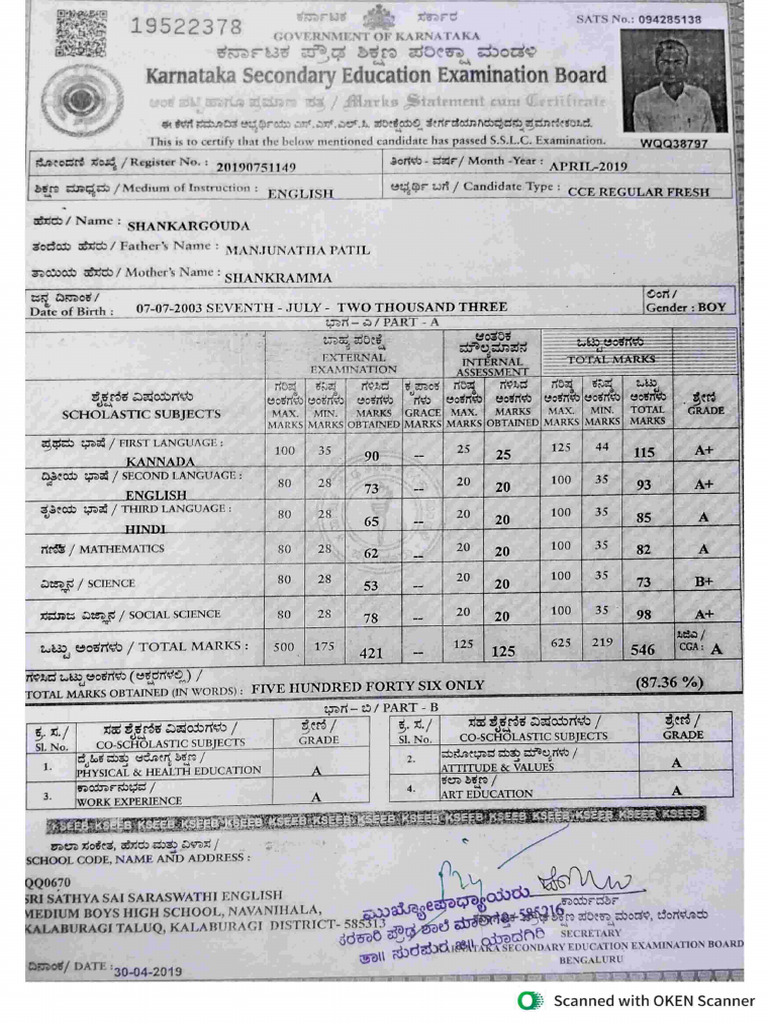 19522378
ಕರ್ನಾಟಕ ಸರ್ಕಾರ
SATS No.: 094285138
GOVERNMENT OF KARNATAKA
ಕರ್ನಾಟಕ ಪ್ರೌಢ ಶಿಕ್ಷಣ ಪರೀಕ್ಷಾ ಮಂಡಳಿ
Karnataka Secondary Education Examination Board
ಅಂಕ ಪಟ್ಟಿ ಹಾಗೂ ಪ್ರಮಾಣ ಪತ್ರ / Marks Statement cum Certificate
ಈ ಕೆಳಗೆ ನಮೂದಿತ ಅಭ್ಯರ್ಥಿಯು ಎಸ್.ಎಸ್.ಎಲ್.ಸಿ. ಪರೀಕ್ಷೆಯಲ್ಲಿ ತೇರ್ಗಡೆಯಾಗಿರುವುದನ್ನು ಪ್ರಮಾಣೀಕರಿಸಿದೆ.
This is to certify that the below mentioned candidate has passed S.S.L.C. Examination.
WQQ38797
ನೋಂದಣಿ ಸಂಖ್ಯೆ / Register No. : 20190751149
ತಿಂಗಳು - ವರ್ಷ / Month -Year : APRIL-2019
ಶಿಕ್ಷಣ ಮಾಧ್ಯಮ / Medium of Instruction : ENGLISH
ಅಭ್ಯರ್ಥಿ ಬಗೆ / Candidate Type : CCE REGULAR FRESH
ಹೆಸರು / Name : SHANKARGOUDA
ತಂದೆಯ ಹೆಸರು / Father's Name : MANJUNATHA PATIL
ತಾಯಿಯ ಹೆಸರು / Mother's Name : SHANKRAMMA
ಜನ್ಮ ದಿನಾಂಕ /
Date of Birth : 07-07-2003 SEVENTH - JULY - TWO THOUSAND THREE
ಲಿಂಗ /
Gender : BOY
ಭಾಗ - ಎ / PART - A
ಬಾಹ್ಯ ಪರೀಕ್ಷೆ
EXTERNAL
EXAMINATION
ಆಂತರಿಕ
ಮೌಲ್ಯಮಾಪನ
INTERNAL
ASSESSMENT
ಒಟ್ಟು ಅಂಕಗಳು
TOTAL MARKS
ಶೈಕ್ಷಣಿಕ ವಿಷಯಗಳು
SCHOLASTIC SUBJECTS
ಗರಿಷ್ಠ ಅಂಕಗಳು MAX. MARKS
ಕನಿಷ್ಠ ಅಂಕಗಳು MIN. MARKS
ಗಳಿಸಿದ ಅಂಕಗಳು MARKS OBTAINED
ಕೃಪಾಂಕ ಗಳು GRACE MARKS
ಗರಿಷ್ಠ ಅಂಕಗಳು MAX. MARKS
ಗಳಿಸಿದ ಅಂಕಗಳು MARKS OBTAINED
ಗರಿಷ್ಠ ಅಂಕಗಳು MAX. MARKS
ಕನಿಷ್ಠ ಅಂಕಗಳು MIN. MARKS
ಒಟ್ಟು ಅಂಕಗಳು TOTAL MARKS
ಶ್ರೇಣಿ GRADE
ಪ್ರಥಮ ಭಾಷೆ / FIRST LANGUAGE :
KANNADA 100 35 90 -- 25 25 125 44 115 A+
ದ್ವಿತೀಯ ಭಾಷೆ / SECOND LANGUAGE :
ENGLISH 80 28 73 -- 20 20 100 35 93 A+
ತೃತೀಯ ಭಾಷೆ / THIRD LANGUAGE :
HINDI 80 28 65 -- 20 20 100 35 85 A
ಗಣಿತ / MATHEMATICS 80 28 62 -- 20 20 100 35 82 A
ವಿಜ್ಞಾನ / SCIENCE 80 28 53 -- 20 20 100 35 73 B+
ಸಮಾಜ ವಿಜ್ಞಾನ / SOCIAL SCIENCE 80 28 78 -- 20 20 100 35 98 A+
ಒಟ್ಟು ಅಂಕಗಳು / TOTAL MARKS : 500 175 421 -- 125 125 625 219 546 ಸಿಜಿಎ / CGA : A
ಗಳಿಸಿದ ಒಟ್ಟು ಅಂಕಗಳು (ಅಕ್ಷರಗಳಲ್ಲಿ) /
TOTAL MARKS OBTAINED (IN WORDS) : FIVE HUNDRED FORTY SIX ONLY (87.36 %)
ಭಾಗ - ಬಿ / PART - B
ಕ್ರ. ಸ. / Sl. No.
ಸಹ ಶೈಕ್ಷಣಿಕ ವಿಷಯಗಳು / CO-SCHOLASTIC SUBJECTS
ಶ್ರೇಣಿ / GRADE
ಕ್ರ. ಸ. / Sl. No.
ಸಹ ಶೈಕ್ಷಣಿಕ ವಿಷಯಗಳು / CO-SCHOLASTIC SUBJECTS
ಶ್ರೇಣಿ / GRADE
1. ದೈಹಿಕ ಮತ್ತು ಆರೋಗ್ಯ ಶಿಕ್ಷಣ / PHYSICAL & HEALTH EDUCATION A
2. ಮನೋಭಾವ ಮತ್ತು ಮೌಲ್ಯಗಳು / ATTITUDE & VALUES A
3. ಕಾರ್ಯಾನುಭವ / WORK EXPERIENCE A
4. ಕಲಾ ಶಿಕ್ಷಣ / ART EDUCATION A
KSEEB KSEEB KSEEB KSEEB KSEEB KSEEB KSEEB KSEEB KSEEB KSEEB KSEEB KSEEB KSEEB KSEEB
ಶಾಲಾ ಸಂಕೇತ, ಹೆಸರು ಮತ್ತು ವಿಳಾಸ /
SCHOOL CODE, NAME AND ADDRESS :
QQ0670
SRI SATHYA SAI SARASWATHI ENGLISH
MEDIUM BOYS HIGH SCHOOL, NAVANIHALA,
KALABURAGI TALUQ, KALABURAGI DISTRICT- 585313
ಮುಖ್ಯೋಪಾಧ್ಯಾಯರು
ಸರಕಾರಿ ಪ್ರೌಢ ಶಾಲೆ
ತಾ॥ ಸುರಪುರ ಜಿ॥ ಯಾದಗಿರಿ
ಕಾರ್ಯದರ್ಶಿ
ಶಿಕ್ಷಣ ಪರೀಕ್ಷಾ ಮಂಡಳಿ, ಬೆಂಗಳೂರು
SECRETARY
KARNATAKA SECONDARY EDUCATION EXAMINATION BOARD
BENGALURU
ದಿನಾಂಕ / DATE : 30-04-2019
Scanned with OKEN Scanner